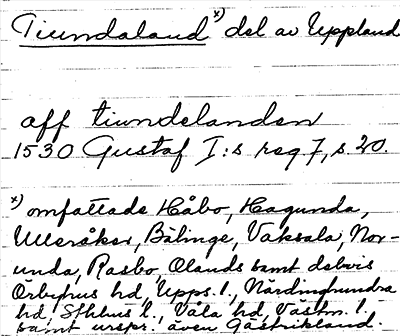 Tiundaland x) del av Uppland
aff tiundelanden
1530 Gustaf I:s reg 7, s 20.
x) omfattade Håbo, Hagunda,
Ulleråker, Bälinge, Vaksala, Nor-
unda, Rasbo, Olands samt delvis
Örbyhus hd, Upps. l., Närdinghundra
hd, Sthlms l., Våla hd, Västm. l.
samt urspr. även Gästrikland.